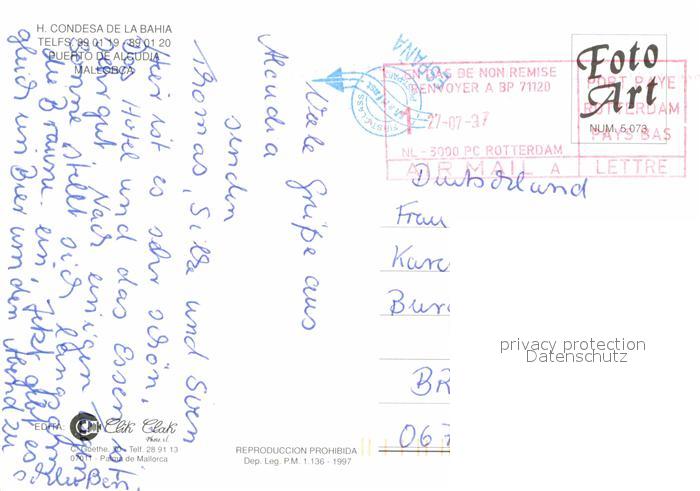 H. CONDESA DE LA BAHIA
TELFS. 89 01 19 - 89 01 20
PUERTO DE ALCUDIA
MALLORCA
Viele Grüße aus
Alcudia
senden
Thomas, Silke und Sven
Hier ist es sehr schön,
das Hotel und das Essen ist
sehr gut. Nach einigen
Sonne stellt sich langsam
die Bräune ein. Jetzt gibt es
gleich ein Bier um den Abend zu
ESPAÑA
EN CAS DE NON REMISE
RENVOYER A BP 71120
27-07-97
NL - 3000 PC ROTTERDAM
AIR MAIL A
PORT PAYE
ROTTERDAM
PAYS BAS
LETTRE
Foto
Art
NUM. 5.073
Deutschland
Frau
BR
067
privacy protection
Datenschutz
EDITA:
Clik Clak
Photo sl.
C. Goethe, Telf. 28 91 13
07011 - Palma de Mallorca
REPRODUCCION PROHIBIDA
Dep. Leg. P.M. 1.136 - 1997